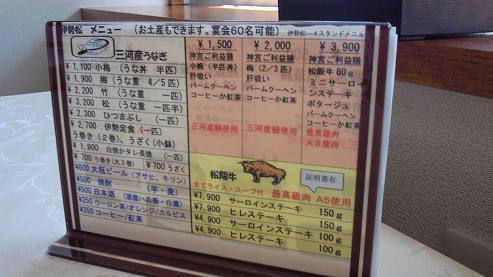 伊勢松 メニュー (お土産もできます。宴会60名可能) 伊勢松一4スタンドメニュー
三河産うなぎ
¥1,100 小梅 (うな丼 半匹)
¥1,900 梅 (うな重 4/5匹)
¥2,200 竹 (うな重 一匹)
¥3,200 松 (うな重 一匹半)
¥2,300 ひつまぶし (一匹)
¥2,700 伊勢定食 (一匹)
う巻き(2巻)、うざく(小鉢)
¥1,900 白焼かタレ長焼 (一匹)
¥700 う巻き(大3巻) ¥700 うざく
¥600 大阪ビール (アサヒ、キリン)
¥500 焼酎 (芋・麦)
¥500 日本酒
¥250 ウーロン茶/オレンジ/カルピス
¥250 コーヒー/紅茶
¥1,500
神宮ご利益膳
小梅 (半匹丼)
肝吸い
バームクーヘン
コーヒーか紅茶
三河産鰻使用
¥2,000
神宮ご利益膳
梅 (2/3匹)
肝吸い
バームクーヘン
コーヒーか紅茶
三河産鰻使用
¥3,900
神宮ご利益膳
松阪牛80g
ミニサーロインステーキ
ポタージュ
バームクーヘン
コーヒーか紅茶
最高級肉
A5使用
松阪牛
証明書有
全てライス・スープ付 最高級肉 A5使用
¥7,900 サーロインステーキ 150g
¥7,900 ヒレステーキ 150g
¥4,900 サーロインステーキ 100g
¥4,900 ヒレステーキ 100g